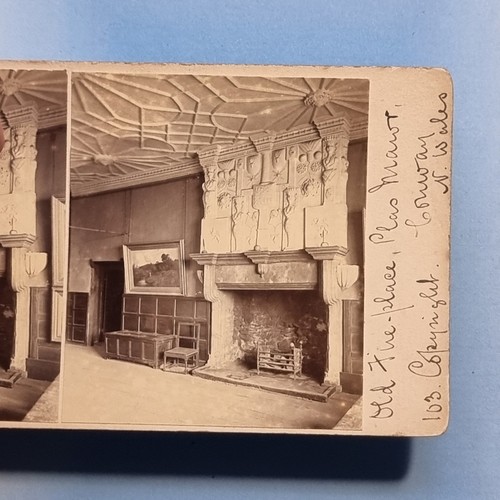 Old Fire-place, Plas Mawr,
Conway
N. Wales
103. Copyright.